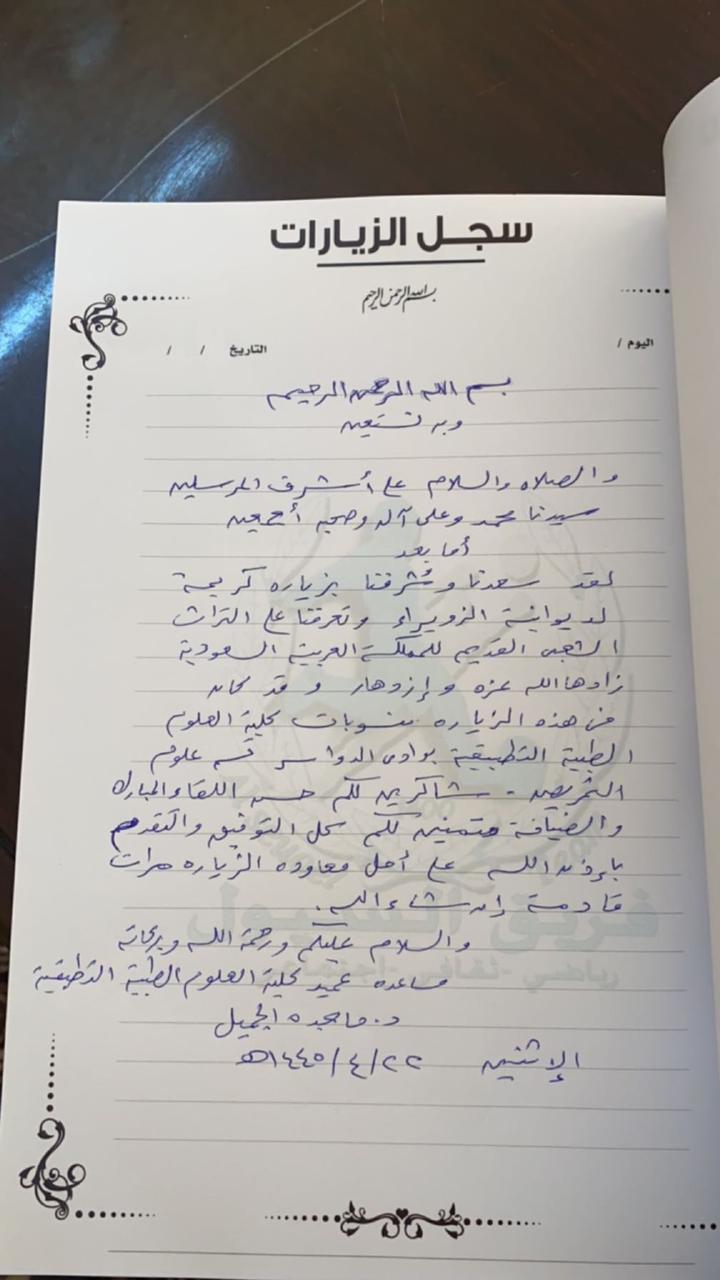 سجل الزيارات
بسم الله الرحمن الرحيم
اليوم / التاريخ / /
بسم الله الرحمن الرحيم
وبه نستعين
والصلاه والسلام على أشرف المرسلين
سيدنا محمد وعلى آله وصحبه أجمعين
أما بعد
لقد سعدنا وشُرفنا بزياره كريمة
لديوانية الزويراء وتعرفنا على التراث
الشعبي القديم للمملكة العربية السعودية
زادها الله عزه وإزدهار وقد كان
في هذه الزياره منسوبات كلية العلوم
الطبية التطبيقية بوادي الدواسر قسم علوم
التمريض - شاكرين لكم حسن اللقاء والمبارك
والضيافة متمنين لكم كل التوفيق والتقدم
بإذن الله على أمل معاوده الزياره مرات
قادمة إن شاء الله.
والسلام عليكم ورحمة الله وبركاته
مساعده عميد كلية العلوم الطبية التطبيقية
د. ماجده الجميل
الإثنين ٢٢/٤/١٤٤٥هـ
فريق السيول
رياضي - ثقافي - اجتماعي